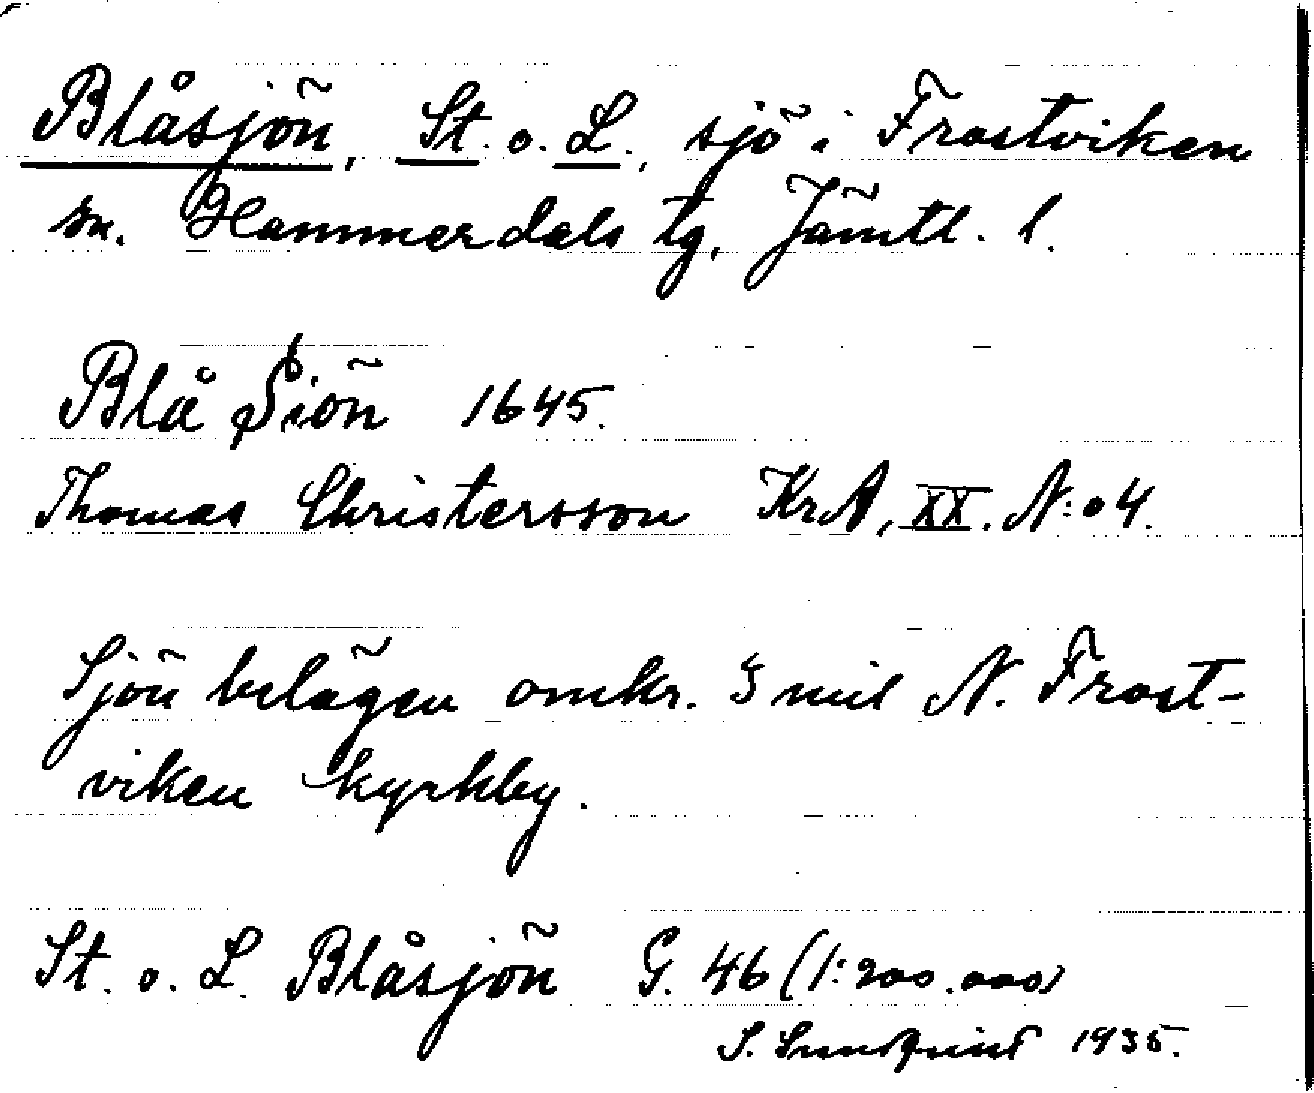 Blåsjön, St. o. L., sjö i Frostviken
sn. Hammerdals tg, Jämtl. l.
Blå Siön 1645.
Thomas Christersson KrA, XX. N:o 4.
Sjön belägen omkr. 3 mil N. Frost-
viken kyrkby.
St. o. L. Blåsjön G. 46 (1:200.000)
S. Sundqvist 1935.